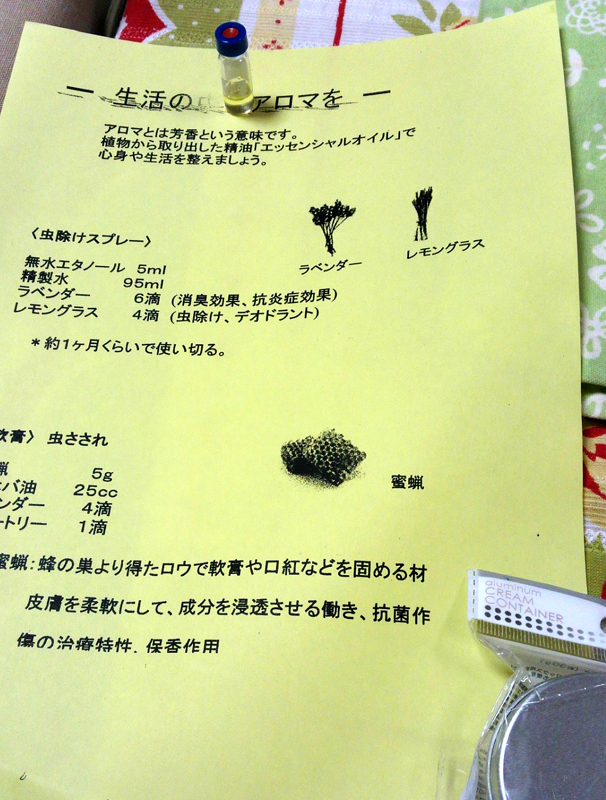 ー 生活の アロマを ー
アロマとは芳香という意味です。
植物から取り出した精油「エッセンシャルオイル」で
心身や生活を整えましょう。
ラベンダー
レモングラス
〈虫除けスプレー〉
無水エタノール 5ml
精製水 95ml
ラベンダー 6滴 (消臭効果、抗炎症効果)
レモングラス 4滴 (虫除け、デオドラント)
*約1ヶ月くらいで使い切る。
軟膏〉 虫さされ
蝋 5g
バ油 25cc
ンダー 4滴
ートリー 1滴
蜜蝋
蜜蝋:蜂の巣より得たロウで軟膏や口紅などを固める材
皮膚を柔軟にして、成分を浸透させる働き、抗菌作
傷の治療特性、保香作用
aluminum
CREAM
CONTAINER